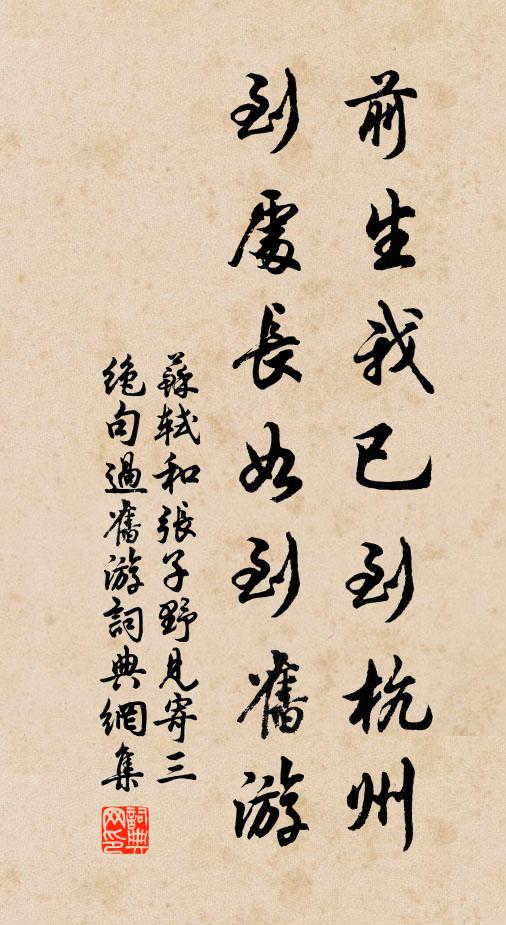 前生我已到杭州
到處長如到舊游
蘇軾和張子野見寄三
絶句過舊游詞典網集
詞典网印